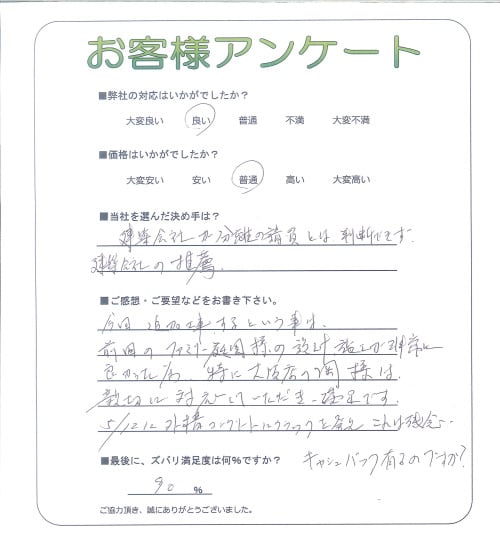 お客様アンケート
■弊社の対応はいかがでしたか？
大変良い 良い 普通 不満 大変不満
■価格はいかがでしたか？
大変安い 安い 普通 高い 大変高い
■当社を選んだ決め手は？
建築会社か分離の請負とは判断です.
建築会社の推薦.
■ご感想・ご要望などをお書き下さい。
今回追加工事するという事は.
前回のファミリー庭園様の設計、施工が非常に
良かった 特に大阪店の 様は
親切に対応していただき
5/12に外構コンクリートにクラックを発見 これは残念‥
キャッシュバック有るのですか?
■最後に、ズバリ満足度は何%ですか？
90 %
ご協力頂き、誠にありがとうございました。